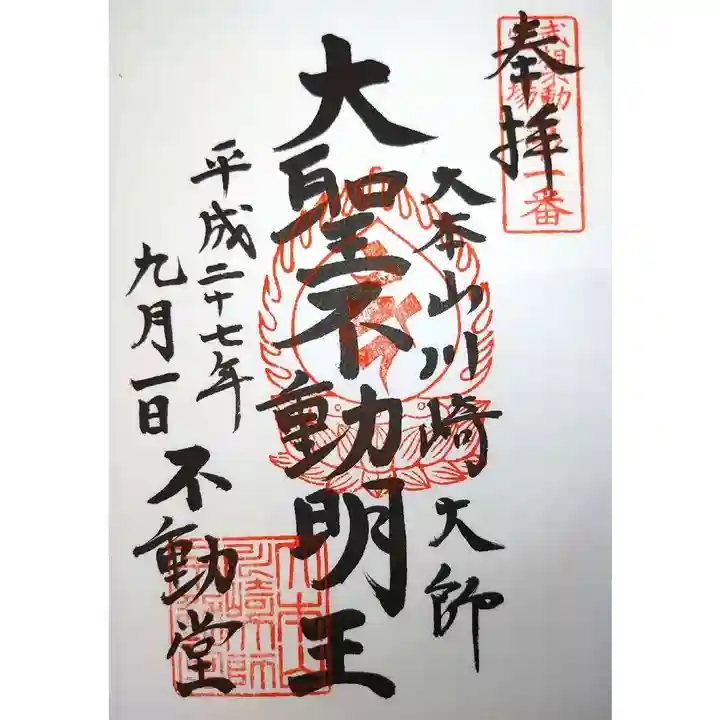 奉拝
大本山川崎大師
大聖不動明王
平成二十七年
九月一日
不動堂